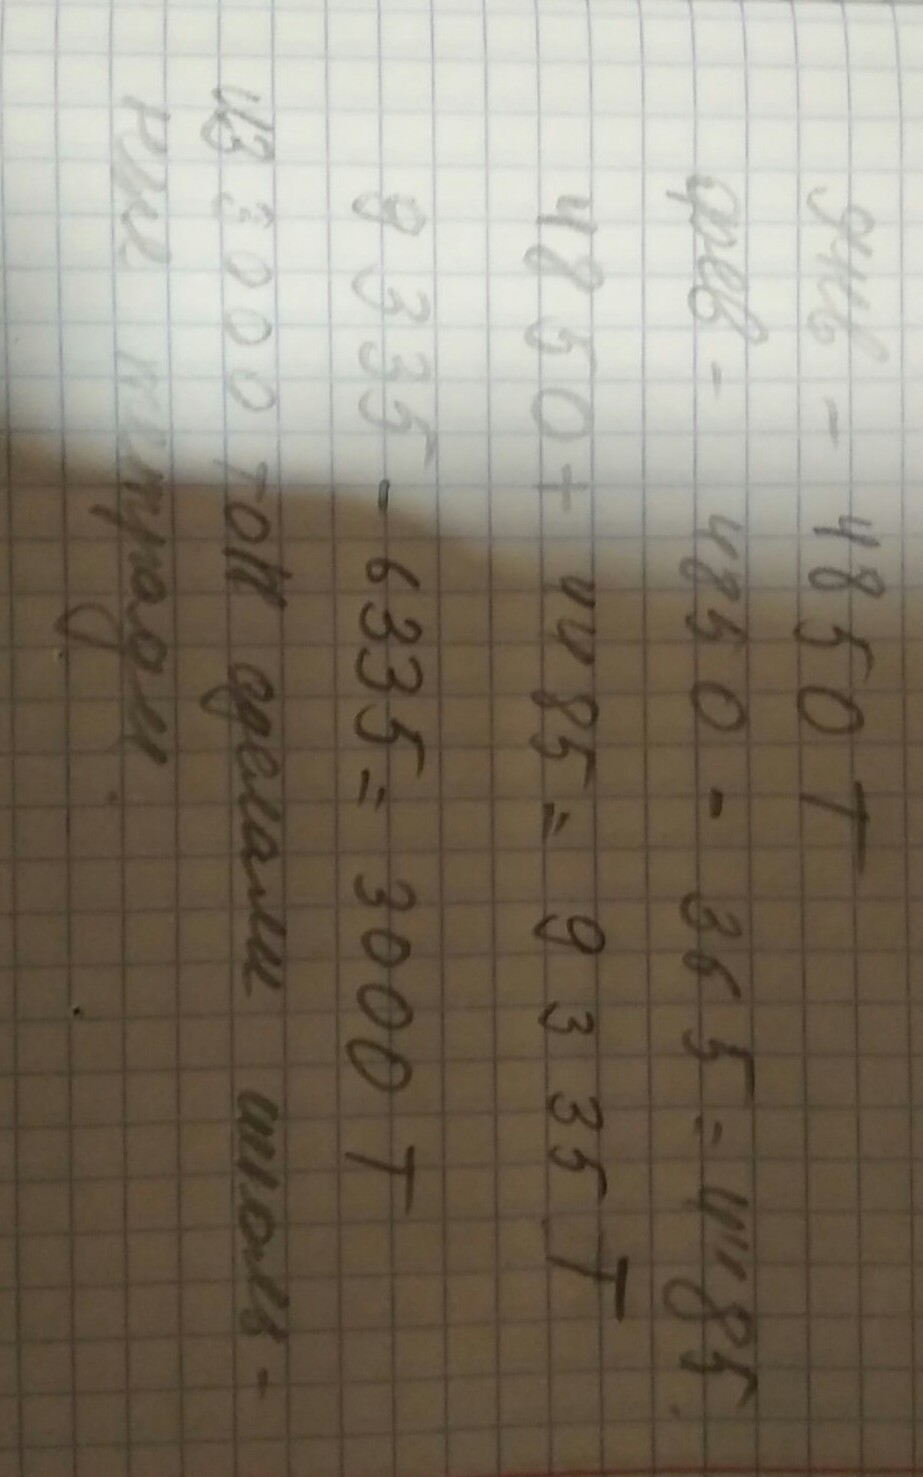 янв - 4850 Т
фев - 4850 - 365 = 4485.
4850 + 4485 = 9335 Т
9335 - 6335 = 3000 Т
из 3000 тон сделали школь-
ные тетради.